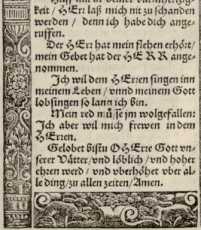 keit / HErr laß mich nit zu schanden
werden / denn ich habe dich ange-
ruffen.
Der HErr hat mein flehen erhört/
mein Gebet hat der HERR ange-
nommen.
Ich wil dem HErren singen inn
meinem Leben / vnnd meinem Gott
lobsingen so lang ich bin.
Mein red müsse jm wolgefallen:
Ich aber wil mich frewen in dem
HErren.
Gelobet bistu O HErre Gott vn-
serer Vätter/vnd löblich / vnd hoher
ehren werd / vnd vberhöhet vber al-
le ding/zu allen zeiten/Amen.